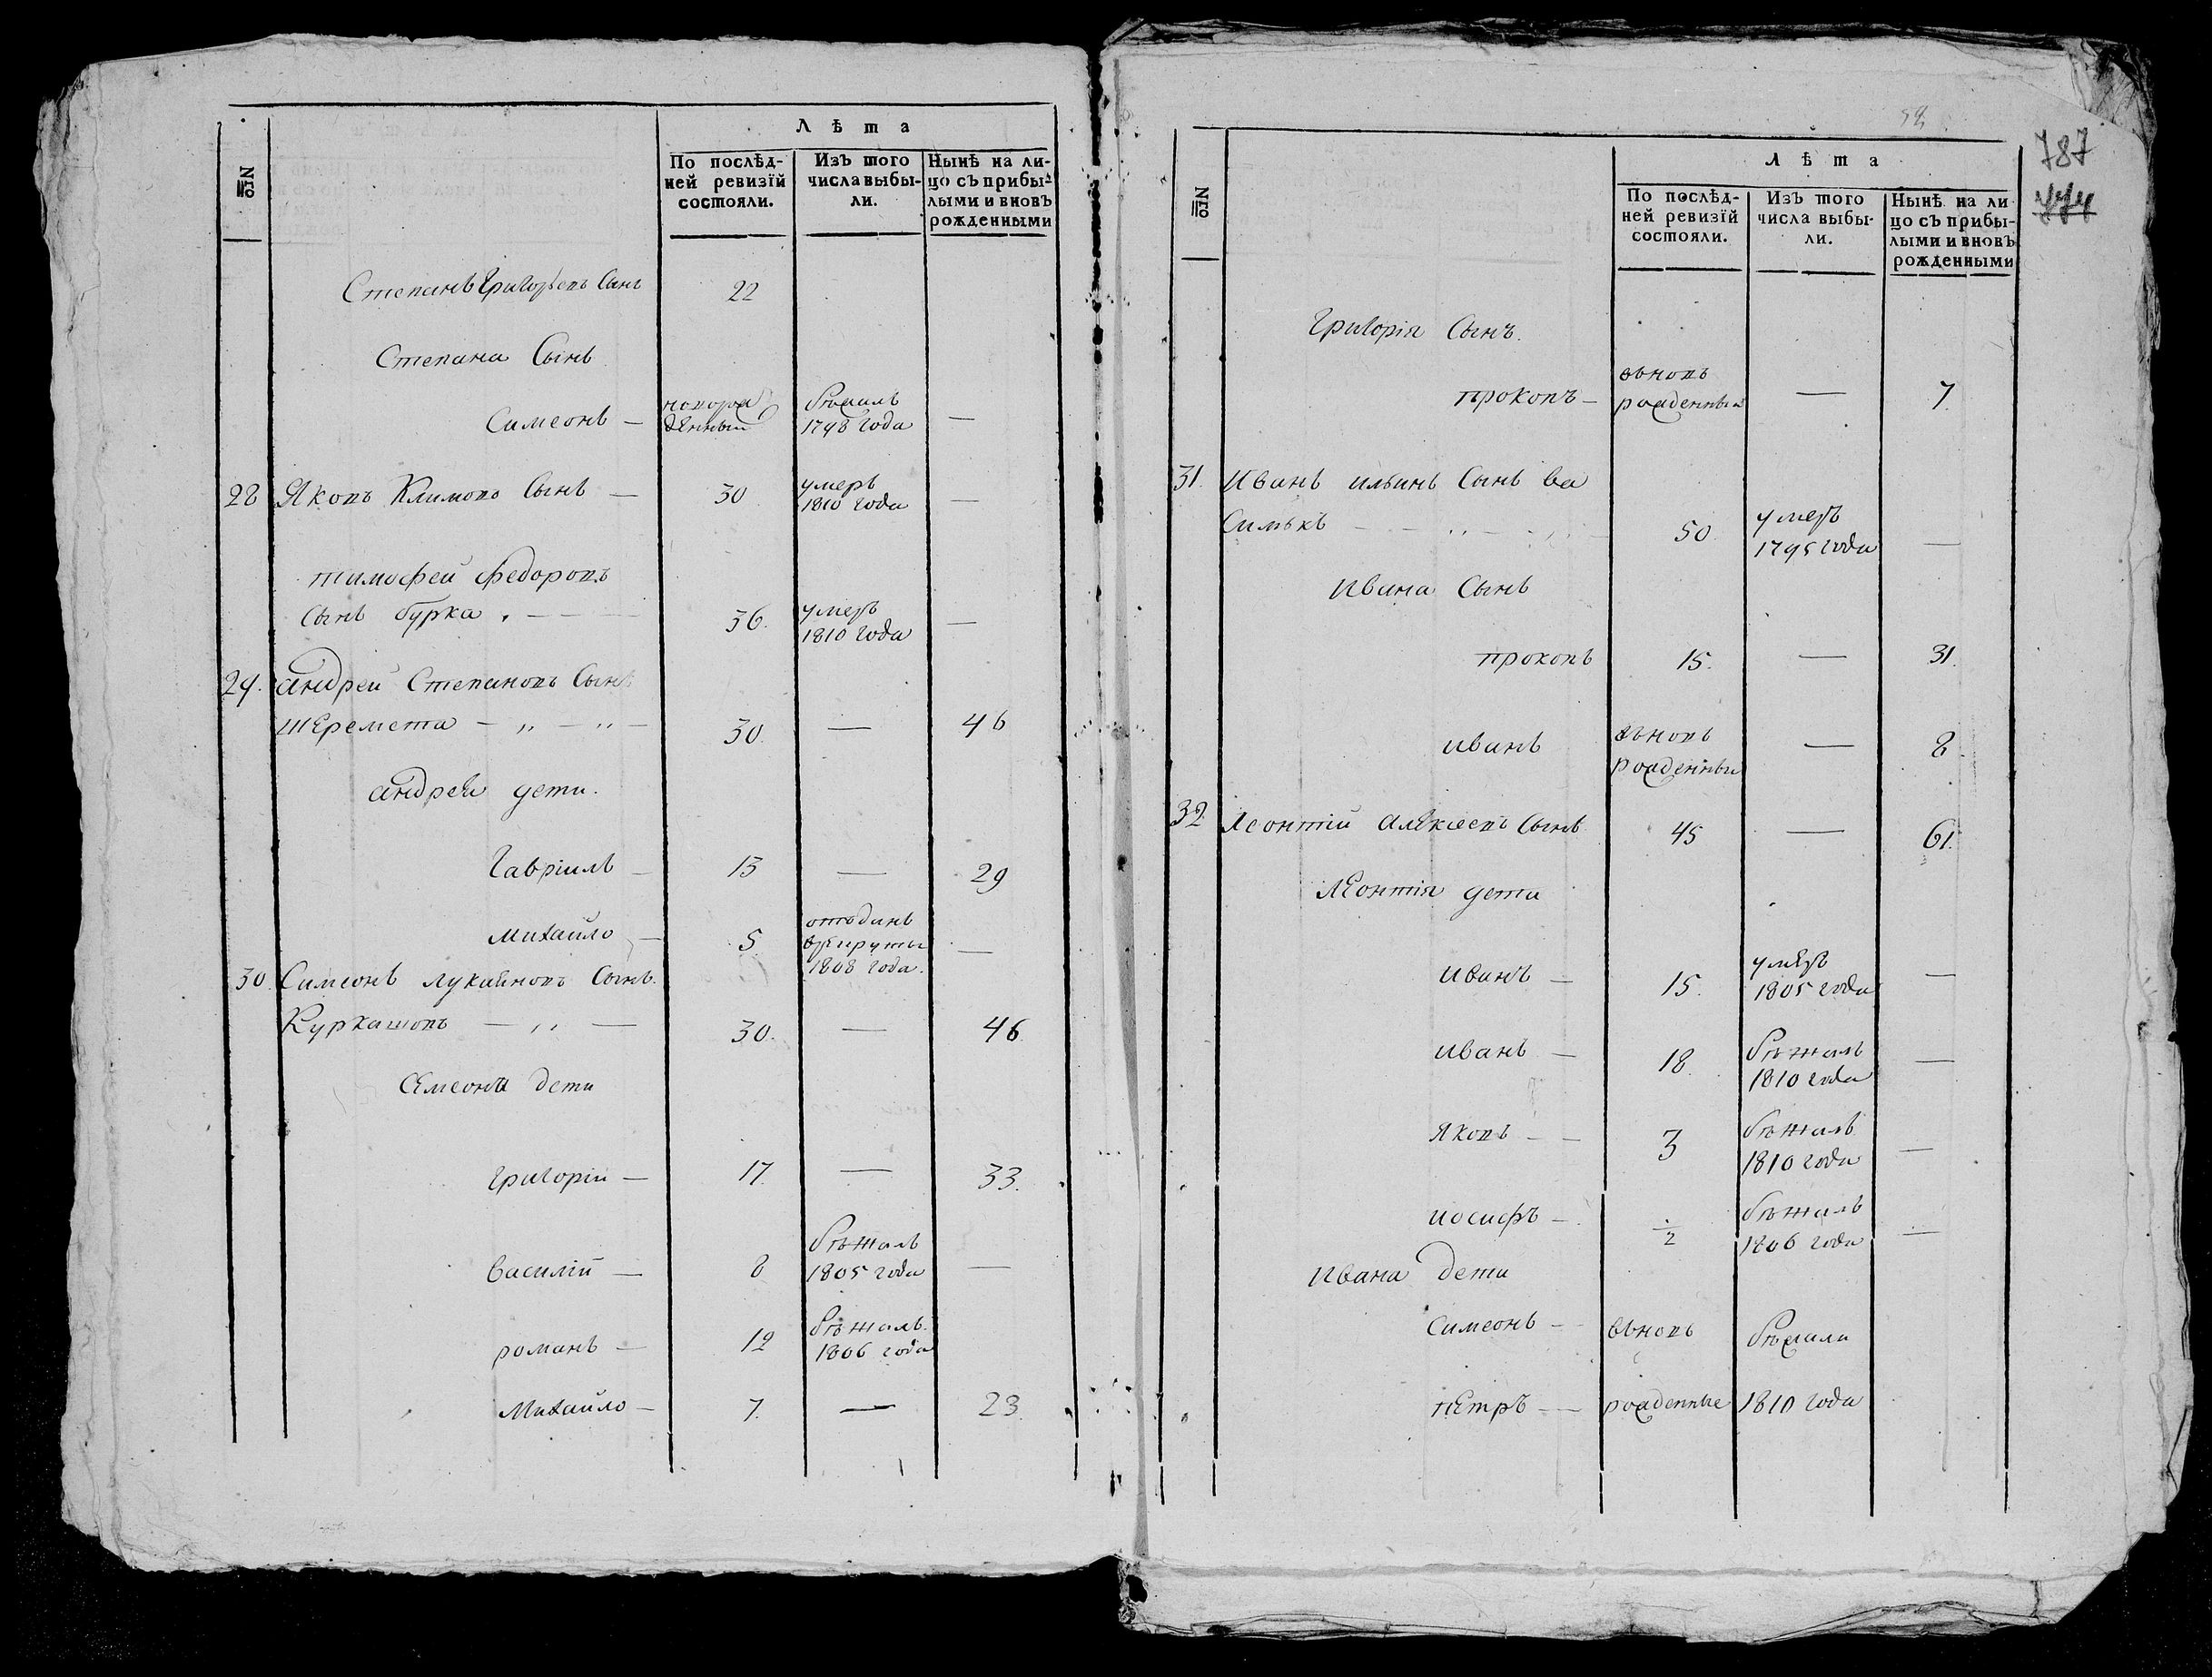 Лѣта
№
По послѣд-
ней ревизїй
состояли.
Изъ того
числа выбы-
ли.
Нынѣ на ли-
цо съ прибы-
лыми и вновь
рожденными
Степанъ Григорьевъ Сынъ 22
Степана Сынъ
Симеонъ — новорож
денный бѣжалъ
1798 года —
28 Яковъ Климовъ Сынъ — 30 умеръ
1810 года —
тимофей федоровъ
Сынъ бурка 36. умеръ
1810 года —
29. андрей Степановъ Сынъ
шеремета — „ — „ — 30. — 46
андрея дети.
Гавріилъ — 13 — 29
Михайло — 5 отъданъ
1808 года. —
30. Симеонъ лукяновъ Сынъ.
Куркашовъ — „ — 30. — 46
Семеона дети
григорій — 17. — 33.
василій — 8 бѣжалъ
1805 года —
романъ — 12 бѣжалъ
1806 года
Михайло — 7. — 23.
58
787
774
Лѣта
№
По послѣд-
ней ревизїй
состояли.
Изъ того
числа выбы-
ли.
Нынѣ на ли
цо съ прибы-
лыми и вновь
рожденными
Григорія Сынъ.
прокопъ — вьновь
рожденный — 7
31. Иванъ ильинъ Сынъ ва
Силькъ 50. умеръ
1795 года —
Ивана Сынъ
прокопъ 15. — 31.
иванъ вьновь
рожденный — 8
32 Леонтій алексеевъ Сынъ 45 — 61.
Леонтія дети
иванъ — 15. умеръ
1805 года —
иванъ — 18 бѣжалъ
1810 года —
яковъ — 3 бѣжалъ
1810 года —
иосифъ — ½ бѣжалъ
1806 года —
Ивана дети
Симеонъ — вьновь бѣжали
петръ — рожденные 1810 года